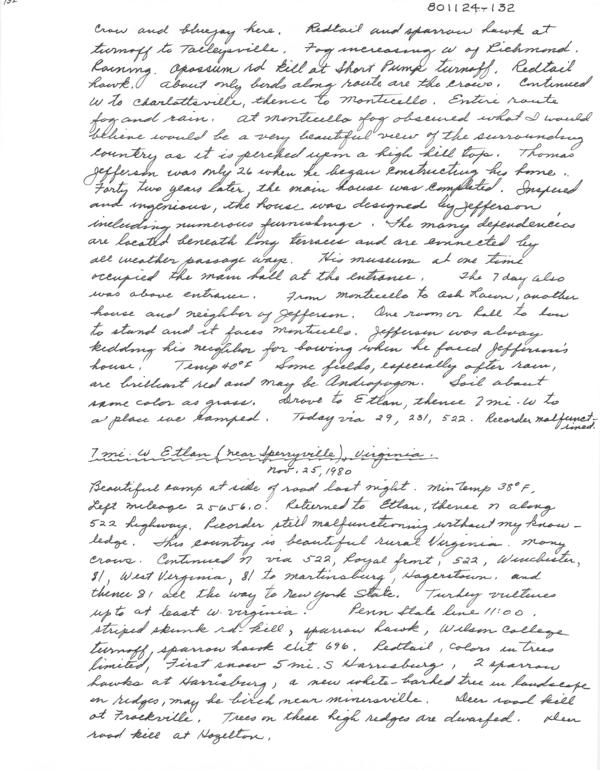 132
801124-132
crow and bluejay here. Redtail and sparrow hawk at
turnoff to Talleysville. Fog increasing W of Richmond.
Raining. Opossum rd kill at Short Pump turnoff. Redtail
hawk. About only birds along route are the crows. Continued
W to Charlottsville, thence to Monticello. Entire route
fog and rain. At Monticello fog obscured what I would
believe would be a very beautiful view of the surrounding
country as it is perched upon a high hill top. Thomas
Jefferson was only 26 when he began constructing his home.
Forty two years later, the main house was completed. Inspired
and ingenious, the house was designed by Jefferson
including numerous furnishings. The many dependencies
are located beneath long terraces and are connected by
all weather passage ways. His museum at one time
occupied the main hall at the entrance. The 7 day also
was above entrance. From Monticello to Ash Lawn, another
house and neighbor of Jefferson. One room or hall to
to stand and it faces Monticello. Jefferson was alway
kidding his neighbor for bowing when he faced Jefferson's
house. Temp 40°F Some fields, especially after rain,
are brilliant red and may be Andropogon. Soil about
same color as grass. Drove to Etlan, thence 7 mi. W to
a place we camped. Today via 29, 231, 522. Recorder malfunct-
ioned.
7 mi. W Etlan (near Sperryville), Virginia.
Nov. 25, 1980
Beautiful camp at side of road last night. Min temp 38°F,
Left mileage 25656.0. Returned to Etlan, thence N along
522 highway. Recorder still malfunctioning without my know-
ledge. This country is beautiful rural Virginia. Many
crows. Continued N via 522, Royal Front, 522, Winchester,
81, West Virginia, 81 to Martinsburg, Hagerstown. and
thence 81 all the way to New York State. Turkey vultures
up to at least W. Virginia. Penn State line 11:00.
striped skunk rd. kill, sparrow hawk, Wilson College
turnoff, sparrow hawk exit 696. Redtail, colors in trees
limited, First snow 5 mi. S Harrisburg, 2 sparrow
hawks at Harrisburg, a new white-barked tree in landscape
on ridges, may be birch near Minersville. Deer road kill
at Frackville. Trees on these high ridges are dwarfed. Deer
road kill at Hazelton.